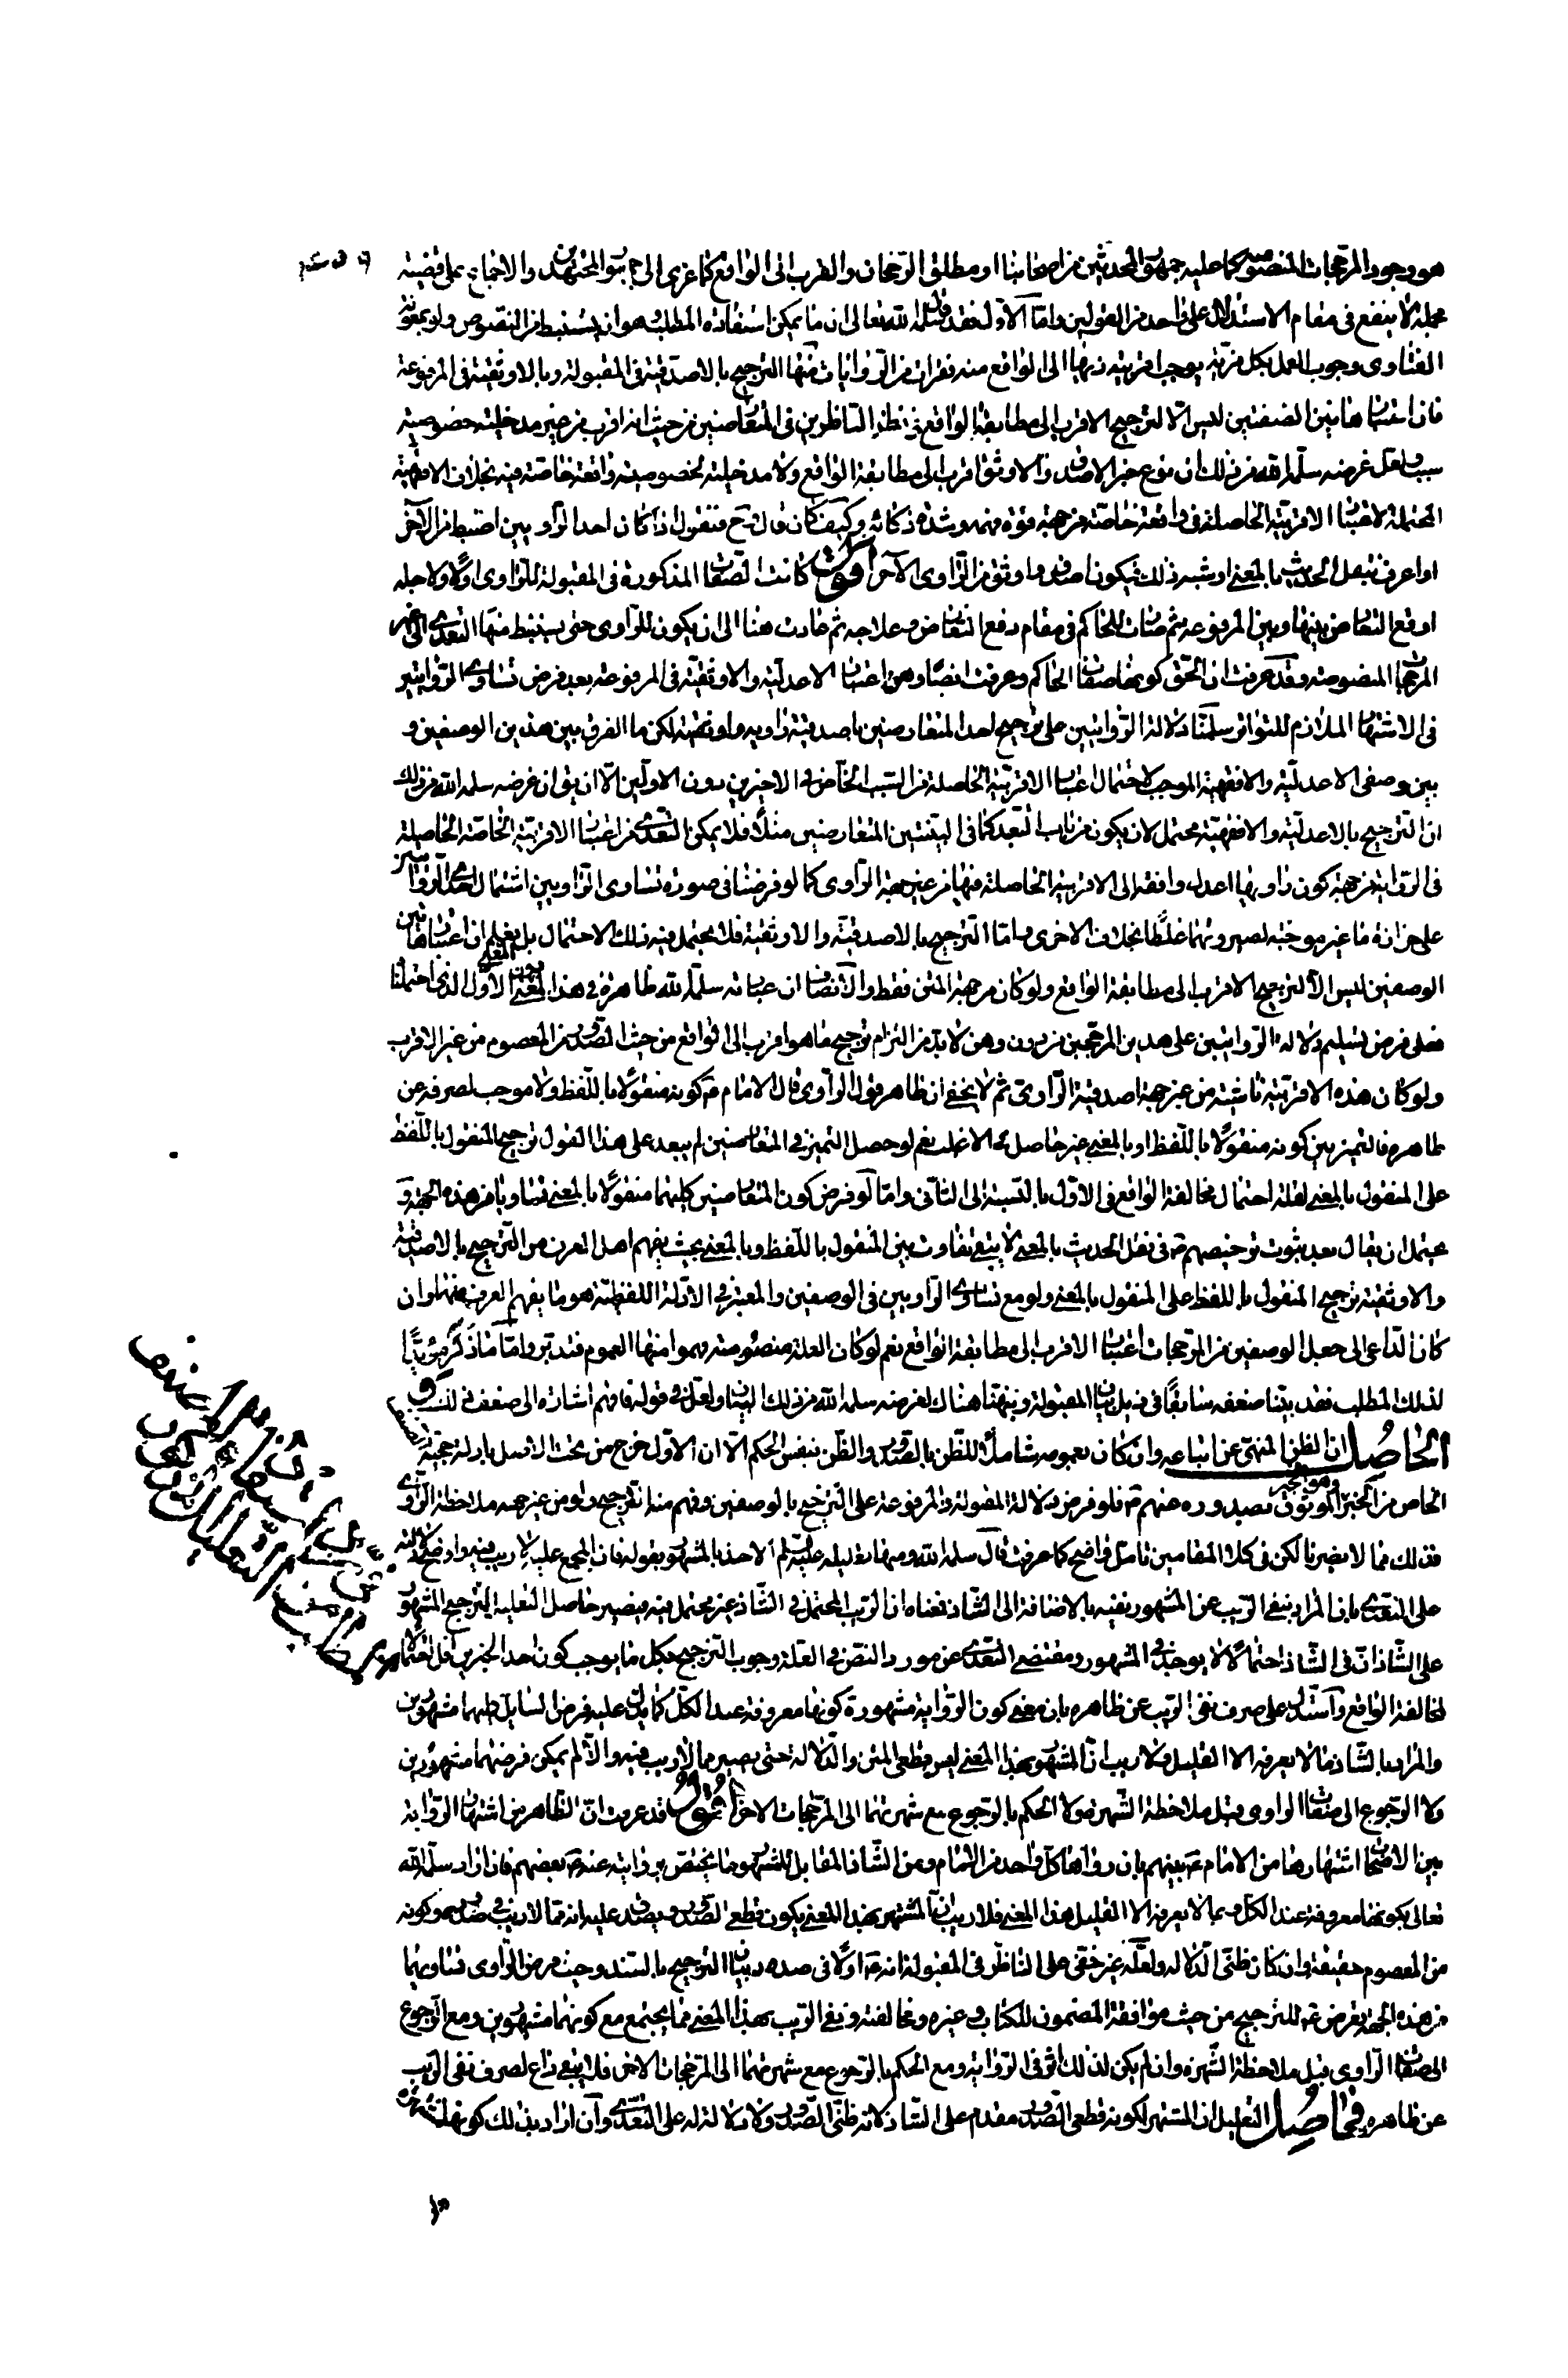 هو وجود المرجحات المنصوصة كما عليه جمهور المحدثين من اصحابنا او مطلق الرجحان والقرب الى الواقع كما عزى الى جمهور المجتهدين والاجماع على قضية
مجملة لا ينفع في مقام الاستدلال على واحد من القولين واما الاول فقد قال سلمه الله تعالى ان ما يمكن استفادة المطلب هو ان يستنبط من النصوص ولو بمعونة
الفتاوى وجوب العمل بكل مزية يوجب اقربية ذيها الى الواقع منه فقرات من الروايات منها الترجيح بالاصدقية في المقبولة وبالاوثقية في المرفوعة
فان اعتبار هاتين الصفتين ليس الا لترجيح الاقرب الى مطابقة الواقع في نظر الناظر في المتعارضين من حيث انه اقرب من غير مدخلية خصوصية
سبب ولعل غرضه سلمه الله من ذلك ان نوع خبر الاصدق والاوثق اقرب الى مطابقة الواقع ولا مدخلية لخصوصية واقعة خاصة فيه بخلاف الافقهية
المحتملة لاعتبار الاقربية الحاصلة في واقعة خاصة من جهة قوة فهمه وشدة ذكائه وكيف كان قال ح فنقول اذا كان احد الراويين اضبط من الآخر
او اعرف بنقل الحديث بالمعنى او شبه ذلك فيكون اصدق واوثق من الراوى الآخر اقول كانت الصفات المذكورة في المقبولة للراوى اولا ولاجله
اوقع التعارض بينها وبين المرفوعة ثم صارت للحاكم في مقام دفع التعارض وعلاجه ثم عادت هنا الى ان يكون للراوى حتى يستنبط منها التعدى الى غير
المرجحات المنصوصة وقد عرفت ان الحق كونها صفات الحاكم وعرفت ايضا وهن اعتبار الاعدلية والاوثقية في المرفوعة بعد فرض تساوى الروايتين
في الاشتهار الملازم للتواتر سلمنا دلالة الروايتين على ترجيح احد المتعارضين باصدقية راويه واوثقيته لكن ما الفرق بين هذين الوصفين و
بين وصفى الاعدلية والافقهية الموجب لاحتمال اعتبار الاقربية الحاصلة من السبب الخاص في الاخيرين دون الاولين الا ان يق ان غرضه سلمه الله من ذلك
ان الترجيح بالاعدلية والافقهية محتمل لان يكون من باب التعبد كما في البينتين المتعارضتين مثلا فلا يمكن التعدى من اعتبار الاقربية الخاصة الحاصلة
في الرواية من جهة كون راويها اعدل وافقه الى الاقربية الحاصلة فيها من غير جهة الراوى كما لو فرضنا في صورة تساوى الراويين اشتمال احدى الروايتين
على حزازة ما غير موجبة لصيرورتها غلطا بخلاف الاخرى واما الترجيح بالاصدقية والاوثقية فلا يحتمل فيه ذلك الاحتمال بل يعلم ان اعتبار هاتين
الوصفين ليس الا لترجيح الاقرب الى مطابقة الواقع ولو كان من جهة المتن فقط والانصاف ان عبارته سلمه الله ظاهرة في هذا المعنى دون المعنى الاول الذى احتملنا
فعلى فرض تسليم دلالة الروايتين على هذين المرجحين من دون وهن لا بد من التزام ترجيح ما هو اقرب الى الواقع من حيث الصدور من المعصوم من غير الاقرب
ولو كان هذه الاقربية ناشئة من غير جهة اصدقية الراوى ثم لا يخفى ان ظاهر قول الراوى قال الامام ع كونه منقولا باللفظ ولا موجب لصرفه عن
ظاهره فالتميز بين كونه منقولا باللفظ او بالمعنى غير حاصل في الاغلب نعم لو حصل التميز في المتعارضين لم يبعد على هذا القول ترجيح المنقول باللفظ
على المنقول بالمعنى لقلة احتمال مخالفة الواقع في الاول بالنسبة الى الثانى واما لو فرض كون المتعارضين كليهما منقولا بالمعنى تساويا من هذه الجهة و
يحتمل ان يقال بعد ثبوت ترخيصهم ع في نقل الحديث بالمعنى لا يبقى تفاوت بين المنقول باللفظ وبالمعنى بحيث يفهم اهل العرف من الترجيح بالاصدقية
والاوثقية ترجيح المنقول باللفظ على المنقول بالمعنى ولو مع تساوى الراويين في الوصفين والمعتبر في الادلة اللفظية هو ما يفهم العرف منها وان
كان الداعى الى جعل الوصفين من المرجحات اعتبار الاقرب الى مطابقة الواقع نعم لو كان العلة منصوصة فهموا منها العموم فتدبر واما ما ذكره مؤيدا
لذلك المطلب فقد بينا ضعفه سابقا في ذيل بيان المقبولة ونبهنا هناك لغرضه سلمه الله من ذلك البيان ولعل في قوله فافهم اشارة الى ضعف ذلك و
الحاصل ان الظن المنهى عن اتباعه وان كان بعمومه شاملا للظن بالصدور والظن بنفس الحكم الا ان الاول خرج من تحت الاصل بادلة حجية
الخاص من الخبر وهو الخبر الموثوق بصدوره عنهم ع فلو فرض دلالة المقبولة والمرفوعة على الترجيح بالوصفين وفهم منه الترجيح ولو من غير جهة ملاحظة الراوى
فذلك مما لا يضرنا لكن في كلا المقامين تامل واضح كما عرفت قال سلمه الله ومنها تعليله عليه السلم الاخذ بالمشهور بقوله فان المجمع عليه لا ريب فيه واوضح دلالته
على التعدى بان المراد بنفى الريب عن المشهور نفيه بالاضافة الى الشاذ معناه ان الريب المحتمل في الشاذ غير محتمل فيه فيصير حاصل التعليل ترجيح المشهور
على الشاذ ان في الشاذ احتمالا لا يوجد في المشهور ومقتضى التعدى عن مورد النص في العلة وجوب الترجيح بكل ما يوجب كون احد الخبرين اقل احتمالا
لمخالفة الواقع واستدل على صرف نفى الريب عن ظاهره بان معنى كون الرواية مشهورة كونها معروفة عند الكل كما يدل عليه فرض السايل كليهما مشهورين
والمراد بالشاذ ما لا يعرفه الا القليل ولا ريب ان المشهور بهذا المعنى ليس قطعى المتن والدلالة حتى يصير مما لا ريب فيه والا لم يمكن فرضهما مشهورين
ولا الرجوع الى صفات الراوى قبل ملاحظة الشهرة ولا الحكم بالرجوع مع شهرتهما الى المرجحات الاخر اقول قد عرفت ان الظاهر من اشتهار الرواية
بين الاصحاب اشتهارها من الامام ع بينهم بان رواها كل واحد من الامام ومن الشاذ المقابل للمشهور ما يختص بروايته عنه ع بعضهم فان اراد سلمه الله
تعالى بكونها معروفة عند الكل وبما لا يعرفه الا القليل هذا المعنى فلا ريب ان المشتهر بهذا المعنى يكون قطعى الصدور ويصدق عليه انه مما لا ريب في صدوره وكونه
من المعصوم حقيقة وان كان ظنى الدلالة ولعله غير خفى على الناظر في المقبولة انه ع اولا في صدد بيان الترجيح بالسند وحيث فرض الراوى تساويهما
من هذه الجهة تعرض ع للترجيح من حيث موافقة المضمون للكتاب وغيره ومخالفته ونفى الريب بهذا المعنى مما يجتمع مع كونهما مشهورين ومع الرجوع
الى صفات الراوى قبل ملاحظة الشهرة وان لم يكن لذلك اثر في الرواية ومع الحكم بالرجوع مع شهرتهما الى المرجحات الاخر فلا يبقى داع لصرف نفى الريب
عن ظاهره فحاصل التعليل ان المشتهر لكونه قطعى الصدور مقدم على الشاذ لانه ظنى الصدور ولا دلالة له على التعدى وان اراد بذلك كونها مشهورة